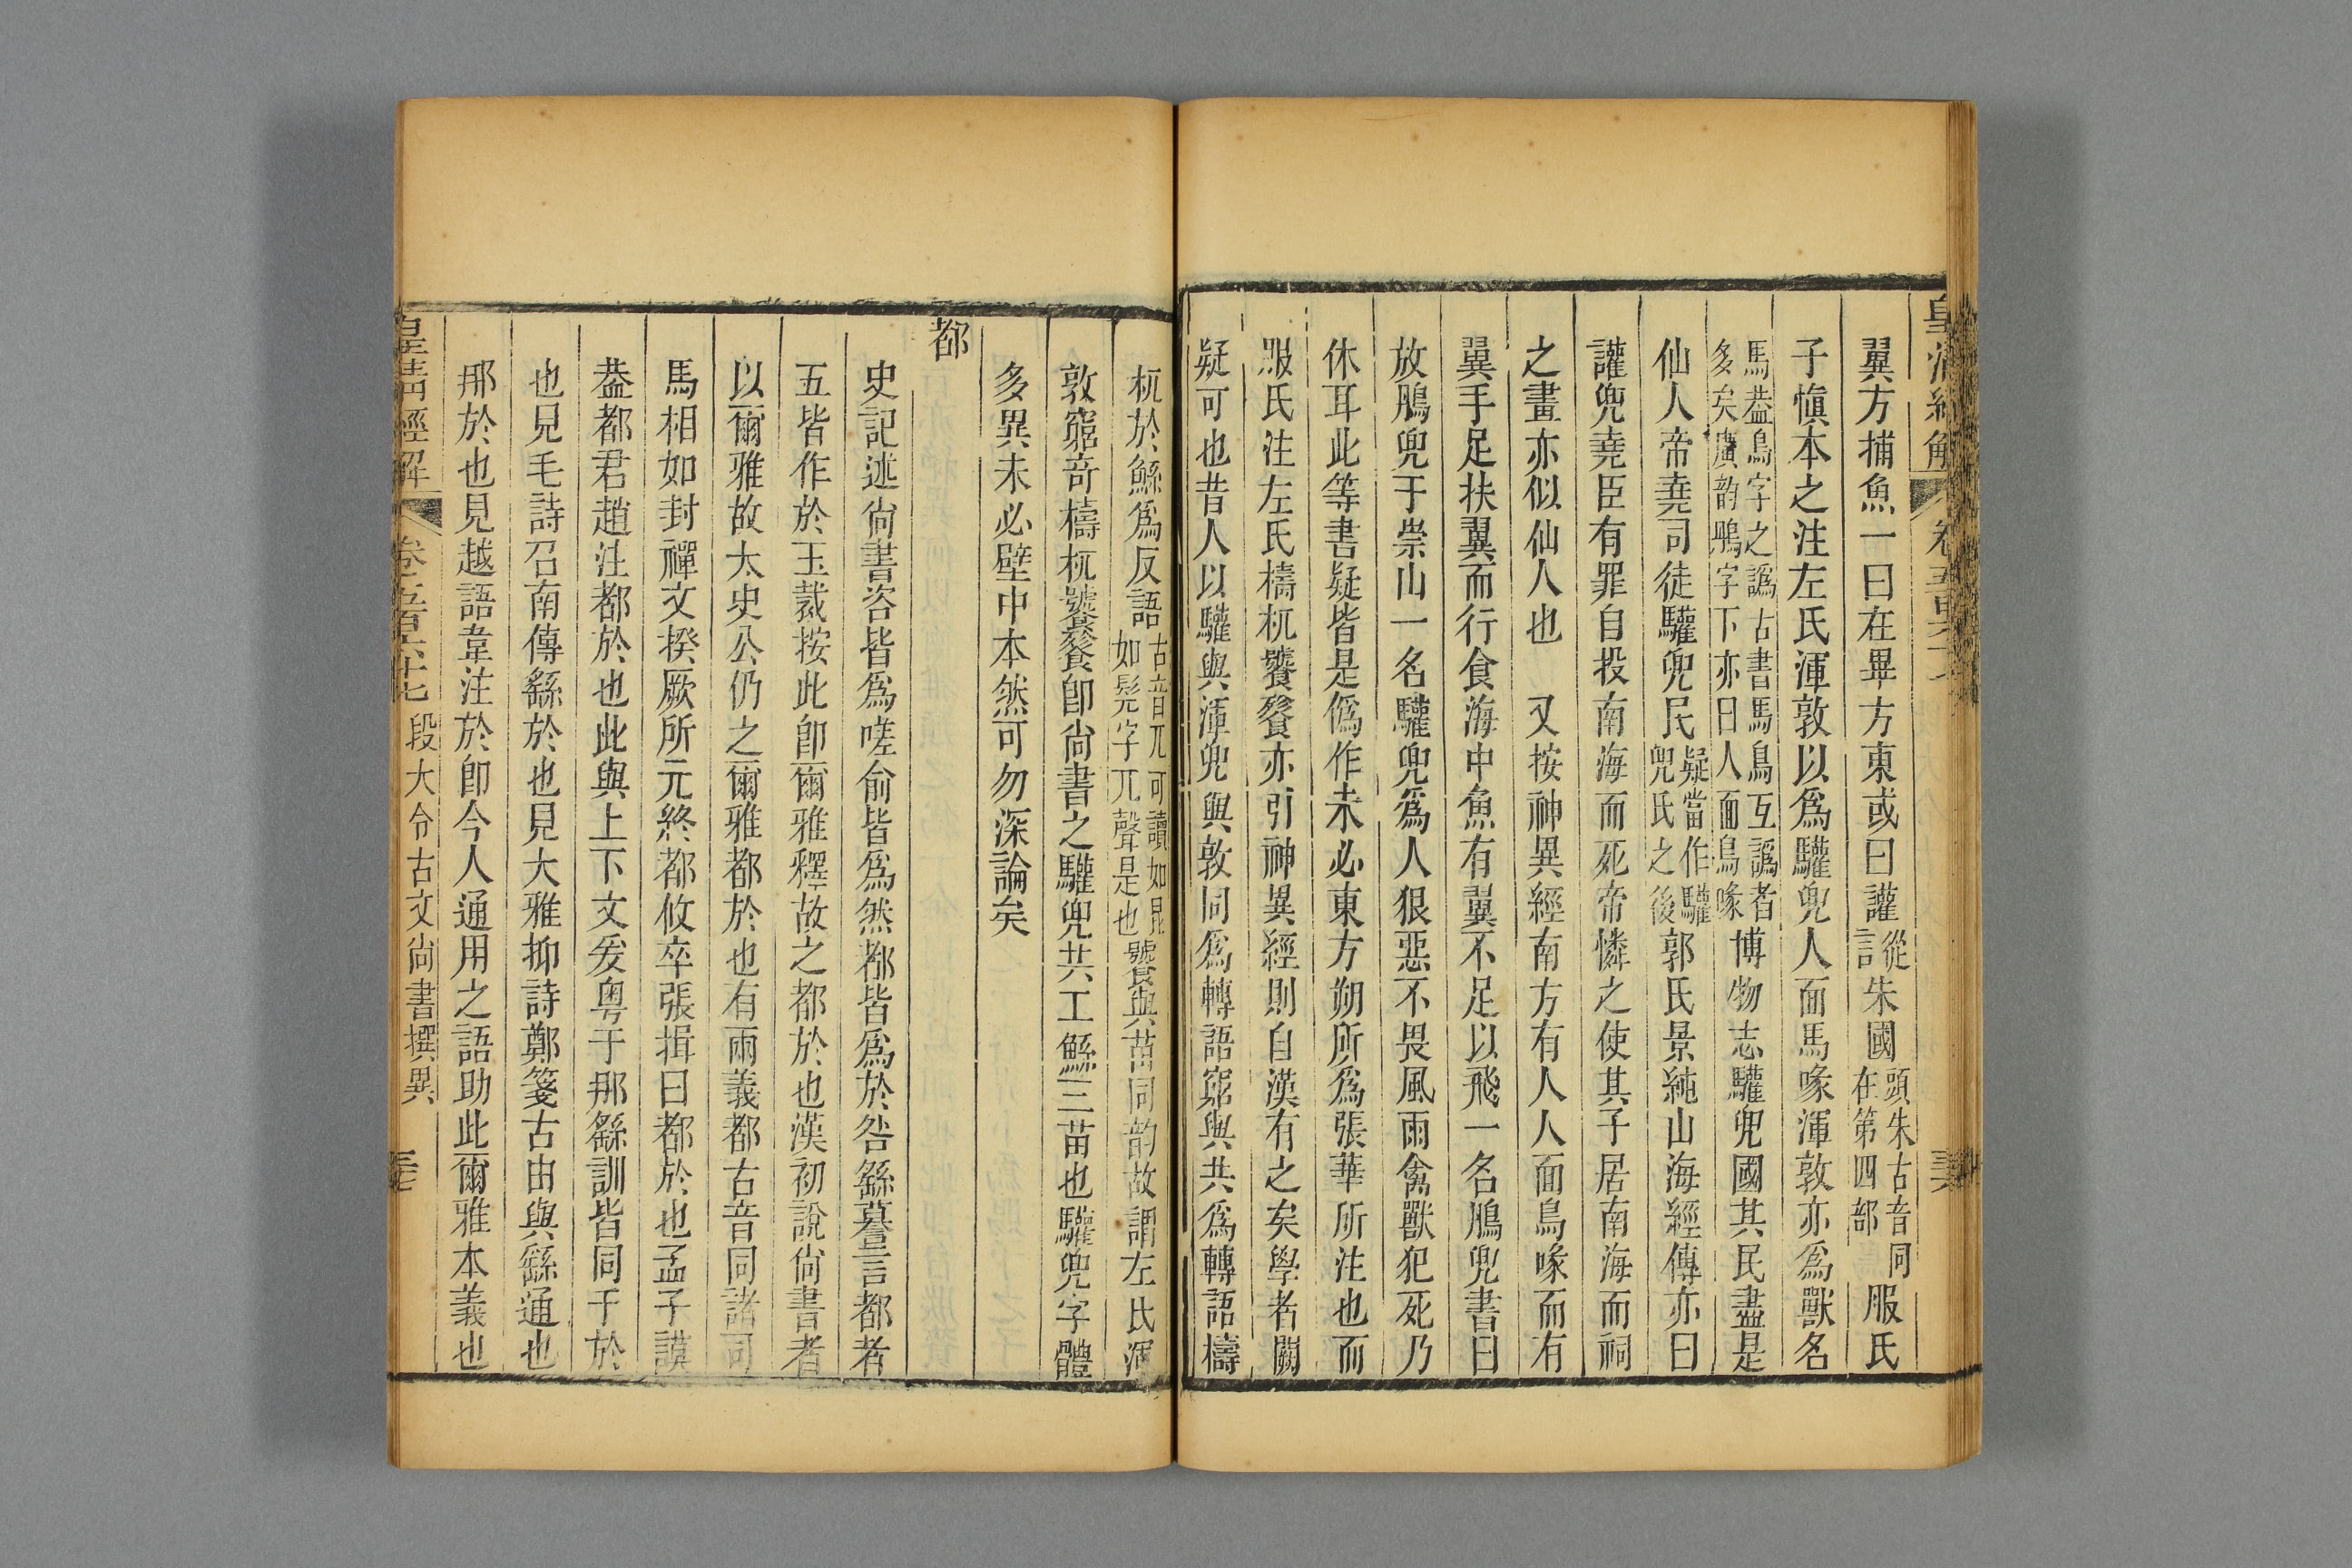 皇清經解
翼方捕魚一曰在畢方東或曰讙從言朱國頭朱古音同在第四部服氏
子愼本之注左氏渾敦以爲驩兜人面馬喙渾敦亦爲獸名
馬葢鳥字之譌古書馬鳥互譌者多矣廣韵鴅字下亦曰人面鳥喙博物志驩兜國其民盡是
仙人帝堯司徒驩兜民疑當作驩兜氏之後郭氏景純山海經傳亦曰
讙兜堯臣有罪自投南海而死帝憐之使其子居南海而祠
之畫亦似仙人也　又按神異經南方有人人面鳥喙而有
翼手足扶翼而行食海中魚有翼不足以飛一名鴅兜書曰
放鴅兜于崇山一名驩兜爲人狠惡不畏風雨禽獸犯死乃
休耳此等書疑皆是僞作未必東方朔所爲張華所注也而
服氏注左氏檮杌饕餮亦引神異經則自漢有之矣學者闕
疑可也昔人以驩與渾兜與敦同爲轉語窮與共爲轉語檮
杌於鯀爲反語古音兀可讀如昆如髡字兀聲是也饕與苗同韵故謂左氏渾
敦窮奇檮杌饕餮卽尙書之驩兜共工鯀三苗也驩兜字體
多異未必壁中本然可勿深論矣
都
史記述尙書咨皆爲嗟俞皆爲然都皆爲於咎繇謩言都者
五皆作於玉裁按此卽爾雅釋故之都於也漢初說尙書者
以爾雅故太史公仍之爾雅都於也有兩義都古音同諸司
馬相如封禪文揆厥所元終都攸卒張揖曰都於也孟子謨
葢都君趙注都於也此與上下文爰粤于那繇訓皆同于於
也見毛詩召南傳繇於也見大雅抑詩鄭箋古由與繇通也
那於也見越語韋注於卽今人通用之語助此爾雅本義也
皇清經解　卷五百六十七　段大令古文尙書撰異　三七